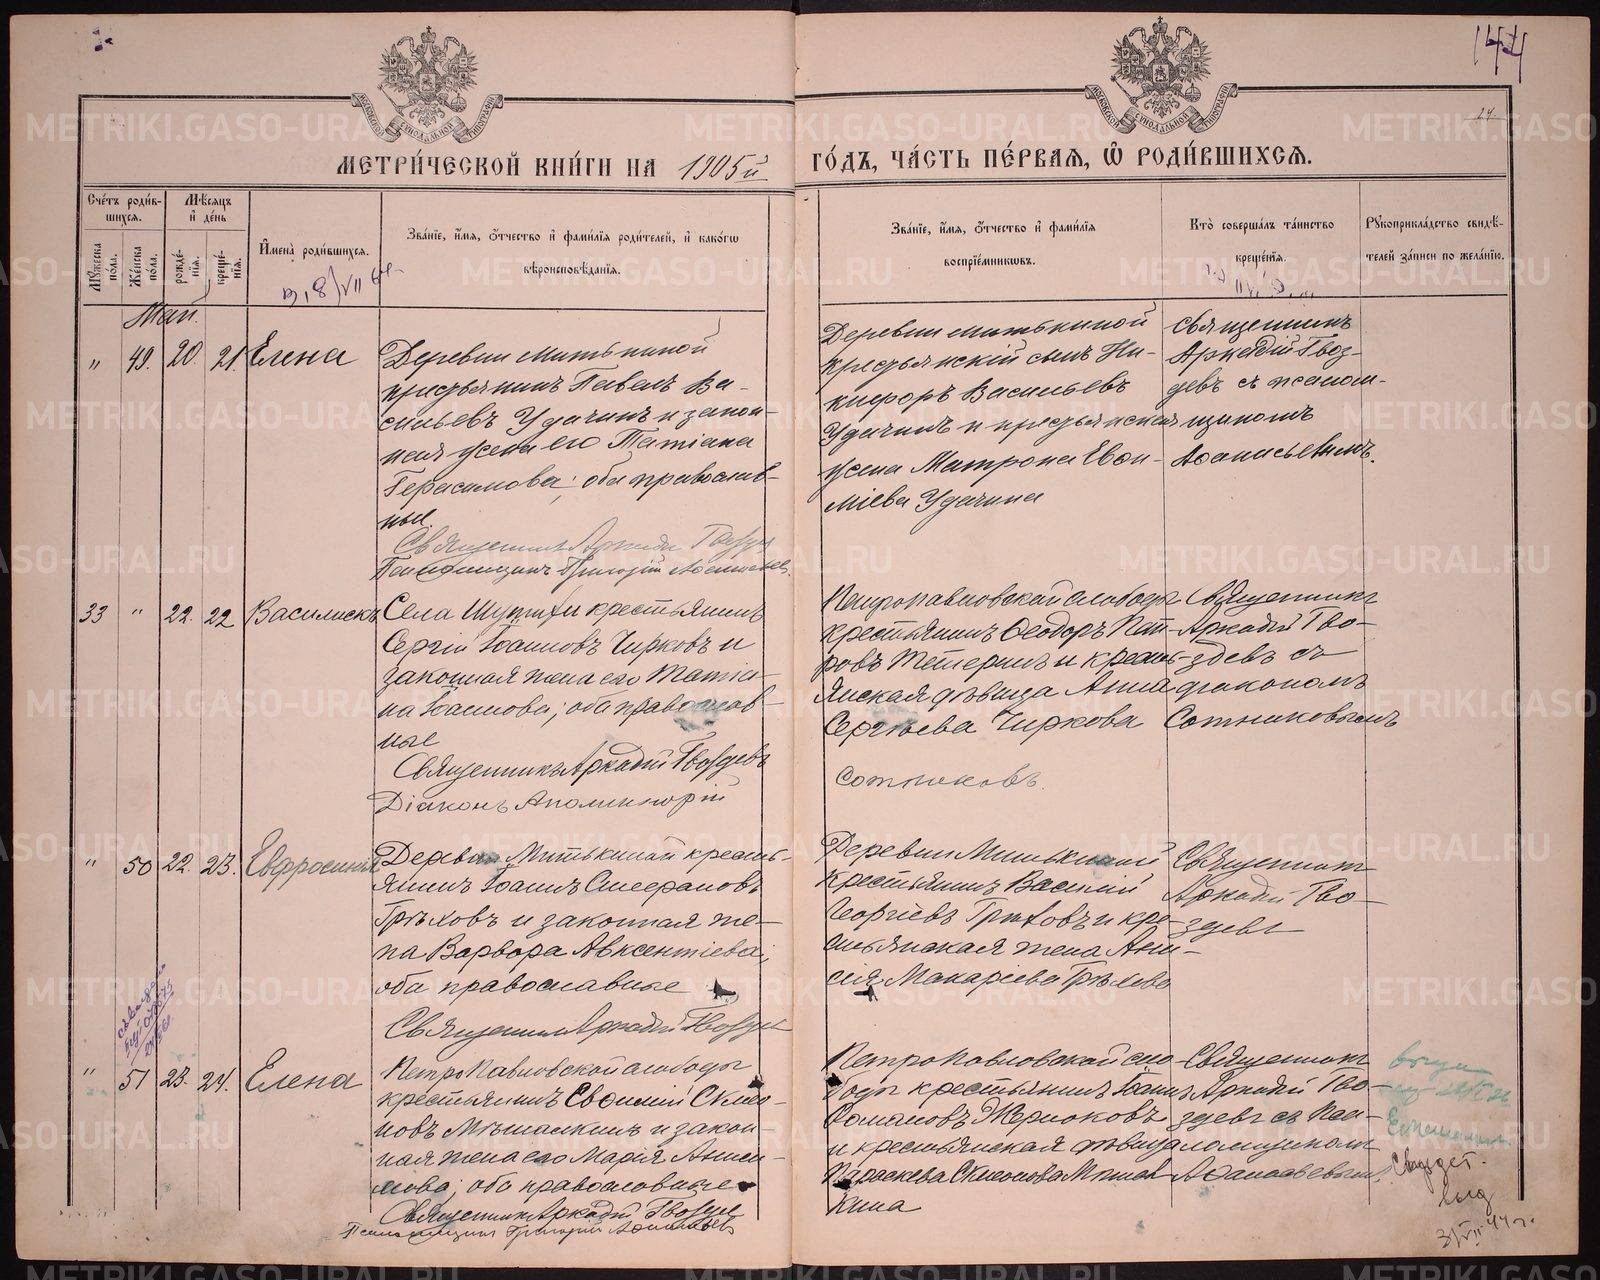 МЕТРИ́ЧЕСКОЙ КНИ́ГИ НА 1905й ГО́ДЪ, ЧА́СТЬ ПЕ́РВАЯ, Ѿ РОДИ́ВШИХСЯ.
24
Сче́тъ роди́в-
шихся.
Мѣ́сяцъ
и де́нь
Мꙋ́жеска
по́ла.
Же́нска
по́ла.
рожде́-
нія.
креще́-
нія.
Имена̀ роди́вшихся.
Зва́ніе, и́мя, о́тчество и фами́лія роди́телей, и како́гѡ
вѣроисповѣ́данія.
Зва́ніе, и́мя, о́тчество и фами́лія
воспріе́мниковъ.
Кто̀ соверша́лъ та́инство
креще́нія.
Рꙋкоприкла́дство свидѣ́-
телей за́писи по жела́нію.
Май.
" 49. 20 21. Елена
Деревни Митькиной
крестьянинъ Павелъ Ва-
сильевъ Удачинъ и закон-
ная жена его Татіана
Герасимова; оба православ-
ные.
Священникъ Аркадій Гвоздевъ
Псаломщикъ Григорій Аѳанасьевъ.
Деревни Митькиной
крестьянскій сынъ Ни-
кифоръ Васильевъ
Удачинъ и крестьянская
жена Матрона Евѳи-
міева Удачина
Священникъ
Аркадій Гвоз-
девъ съ псалом-
щикомъ
Аѳанасьевымъ.
33 " 22. 22 Василискъ
Села Шутихи крестьянинъ
Сергій Іоанновъ Чирковъ и
законная жена его Татіа-
на Іоаннова; оба православ-
ные
Священникъ Аркадій Гвоздевъ
Діаконъ Аполинарій
Сотниковъ.
Петропавловской слободы
крестьянинъ Ѳеодоръ Пет-
ровъ Тетеринъ и кресть-
янская дѣвица Анна
Сергіева Чиркова
Священникъ
Аркадій Гво-
здевъ съ
діакономъ
Сотниковымъ
" 50 22. 23. Евфросинія
Деревни Митькиной кресть-
янинъ Іоаннъ Стефановъ
Грѣховъ и законная же-
на Варвара Авксентіева;
оба православные
Священникъ Аркадій Гвоздевъ
Деревни Митькиной
крестьянинъ Василій
Георгіевъ Грѣховъ и кре-
стьянская жена Ани-
сія Макаріева Грѣхова
Священникъ
Аркадій Гво-
здевъ
" 51 23. 24. Елена
Петропавловской слободы
крестьянинъ Евѳимій Скимо-
новъ Мѣшалкинъ и закон-
ная жена его Марія Аниси-
мова; оба православные
Священникъ Аркадій Гвоздевъ
Псаломщикъ Григорій Аѳанасьевъ
Петропавловской сло-
боды крестьянинъ Іоаннъ
Романовъ Жерноковъ
и крестьянская дѣвица
Параскева
кина
Священникъ
Аркадій Гво-
здевъ съ Пса-
ломщикомъ
Аѳанасьевымъ.
Свидет.
выд
3/VII 44 г.
METRIKI.GASO-URAL.RU